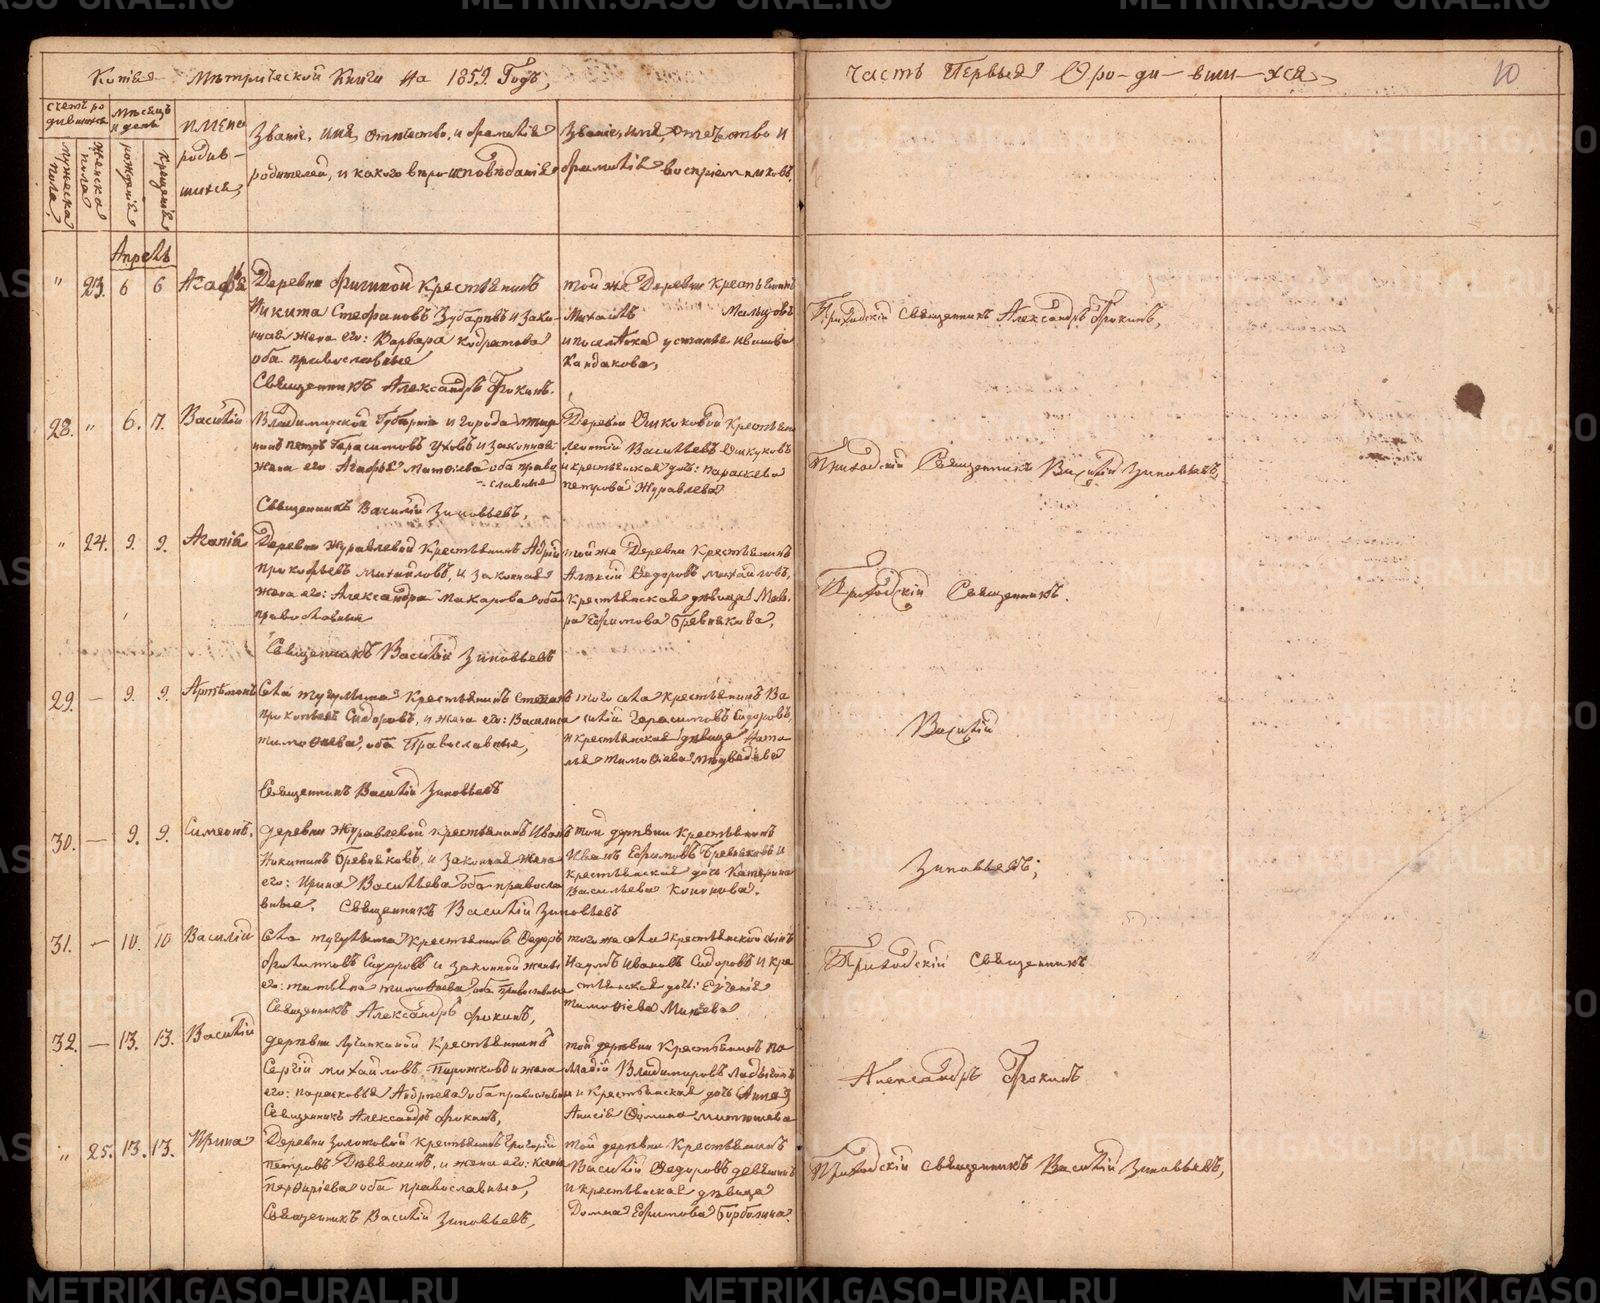 Копія Метрической Книги на 1859. Годъ,
часть Первая О ро-ди-вши-хся
10
счетъ ро
дившихся
мѣсяцъ
и день
имена
родив-
шихся,
мужеска
пола.
женска
пола
рожденія
крещенія
Званіе, имя, отчество, и фамилія
родителей, и какого вѣроисповѣданія
Званіе, имя, отечество и
фамилія воспріемниковъ.
Апрель
" 23. 6 6 Агафья
Деревни Крестьянинъ
Никита Стефановъ Зубаревъ и зако-
нная жена его: Варвара Кодратова
оба православные
Священникъ Александръ Фокинъ.
той же Деревни Крестьянинъ
Михаилъ Мальцовъ
Кандакова,
Приходскій священникъ Александръ Фокинъ,
28. " 6. 7. Василій
Владимирской Губерніи и города
Петръ Герасимовъ Уховъ и законная
жена его Агафья Матвіева оба право
-славные
Священникъ Василій Зиновьевъ,
Деревни Ошкоковой Крестьянинъ
Леонтій Васильевъ Ошкуковъ
и крестьянская дочь: Параскева
Петрова Журавлева
Приходскій Священникъ Василій Зиновьевъ,
" 24. 9. 9. Агапія
Деревни Журавлевой Крестьянинъ Адрій
Прокопьевъ Михайловъ, и законная
жена его: Александра Макарова оба
православные
Священникъ Василій Зиновьевъ
той же Деревни Крестьянинъ
Алексій Ѳедоровъ Михайловъ,
Крестьянская дѣвица Мав-
ра Ефимова Бревнякова,
Приходскій Священникъ.
29. — 9. 9. Артемонъ
Села Тугулыма Крестьянинъ Степанъ
Прокопьевъ Сидоровъ, и жена его: Василиса
Тимоѳиева, оба Православные,
Священникъ Василій Зиновьевъ
того села крестьянинъ Ва
силій Герасимовъ Сидоровъ,
и крестьянская дѣвица Ната-
лья Тимоѳіева Медведева
Василій
30. — 9. 9. Симеонъ,
деревни Журавлевой крестьянинъ Иванъ
Никитинъ Бревняковъ, и законная жена
его: Ирина Васильева оба правосла
вные. Священникъ Василій Зиновьевъ
той деревни крестьянинъ
Иванъ Ефимовъ Бревняковъ и
крестьянская дочь Катерина
Васильева Кононова.
Зиновьевъ;
31. — 10. 10 Василій
Села Тугулыма Крестьянинъ Ѳедоръ
Филиповъ Сидоровъ и законной жены
его: Татьяна Тимоѳиева оба православные
Священникъ Александръ Фокинъ,
того же села крестьянской сынъ
Наумъ Ивановъ Сидоровъ и кре
стьянская дочь: Евгенія
Тимоѳіева Минѣева
Приходскій священникъ
32. — 13. 13. Василій
деревни Лучинкиной Крестьянинъ
Сергій Михайловъ Пирожковъ и жена
его: Парасковья Андріева оба православныи
Священникъ Александръ Фокинъ,
той деревни Крестьянинъ Па
ладій Владимировъ Ладыгинъ
и Крестьянская дочь (Анна)
Анисія Ѳомина Митюшева
Александръ Фокинъ
" 25. 13. 13. Ирина
Деревни Золотовой Крестьянинъ Григорій
Петровъ Девятинъ, и жена его: Ксенія
Перфиріева оба православные,
Священникъ Василій Зиновьевъ,
той деревни Крестьянинъ
Василій Ѳедоровъ Девятинъ
и крестьянская дѣвица
Домна Ефимова Барболина.
Приходскій священникъ Василій Зиновьевъ,
METRIKI.GASO-URAL.RU